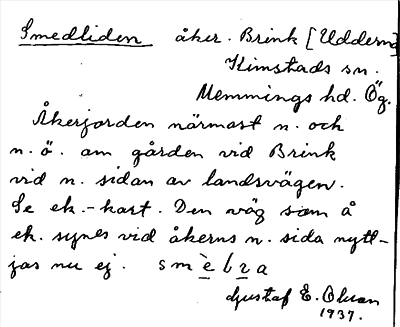 Smedliden åker. Brink [Udderna]
Kimstads sn.
Memmings hd. Ög.
Åkerjorden närmast n. och
n.ö. om gården vid Brink
vid n. sidan av landsvägen.
Se ek.-kart. Den väg som å
ek. synes vid åkerns n. sida nytt-
jas nu ej. smèlza
Gustaf E. Olsson
1937.